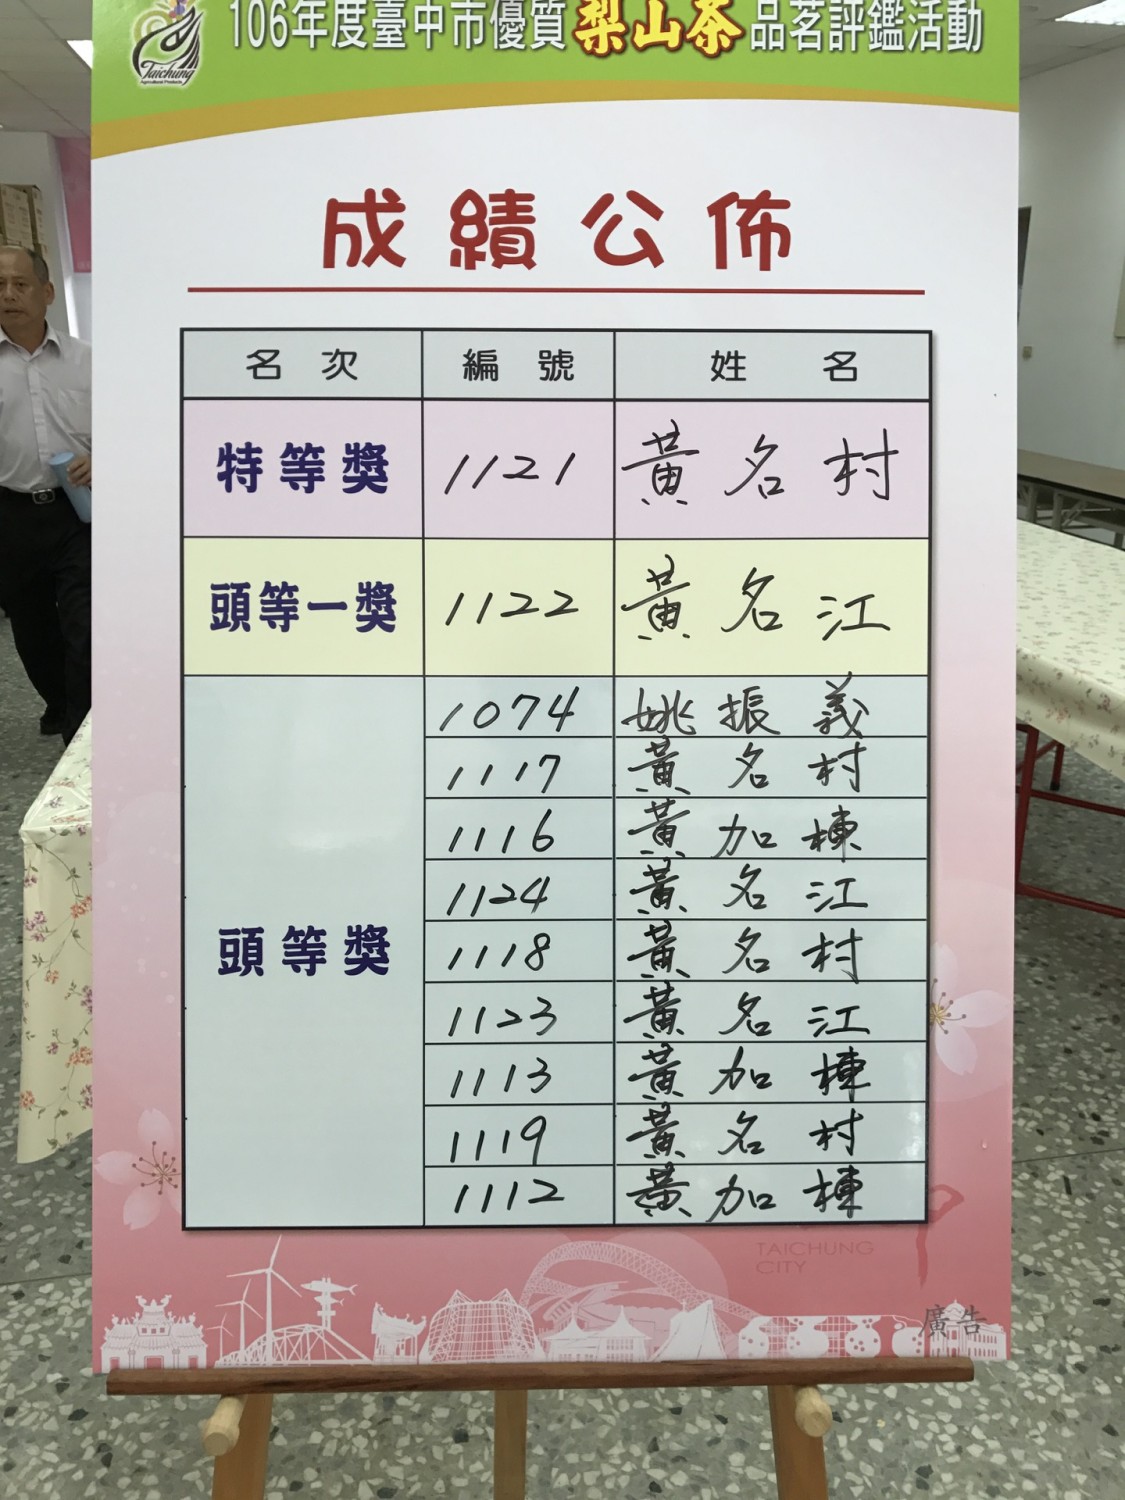 106年度臺中市優質梨山茶品茗評鑑活動
Taichung
Agricultural Products
成績公佈
名次 編號 姓名
特等獎 1121 黃名村
頭等一獎 1122 黃名江
頭等獎
1074 姚振義
1117 黃名村
1116 黃加棟
1124 黃名江
1118 黃名村
1123 黃名江
1113 黃加棟
1119 黃名村
1112 黃加棟
TAICHUNG
CITY
廣告